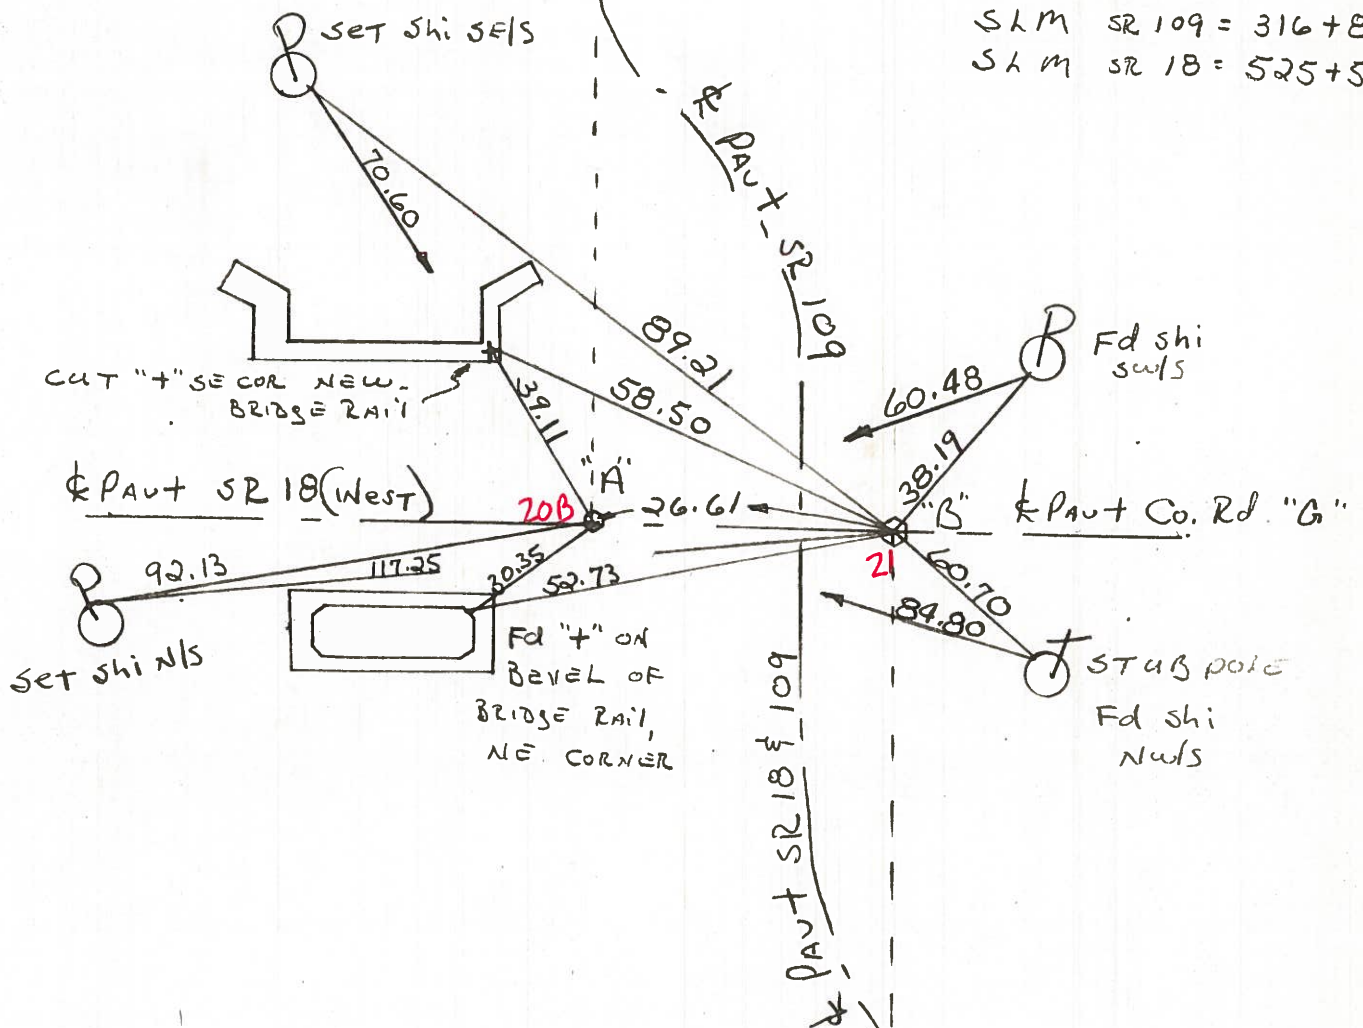 SLM SR 109 = 316+8
SLM SR 18 = 525+5
SET Shi SE/S
70.60
℄ PAVT SR 109
89.21
58.50
39.11
CUT "+" SE COR NEW
BRIDGE RAIL
60.48
Fd Shi
SW/S
38.19
℄ PAVT SR 18 (WEST)
"A"
20B
26.61
"B"
21
℄ PAVT Co. Rd. "G"
92.13
117.25
30.35
52.73
60.70
84.80
SET Shi N/S
Fd "+" ON
BEVEL OF
BRIDGE RAIL,
NE CORNER
STUB POLE
Fd Shi
NW/S
℄ PAVT SR 18 & 109